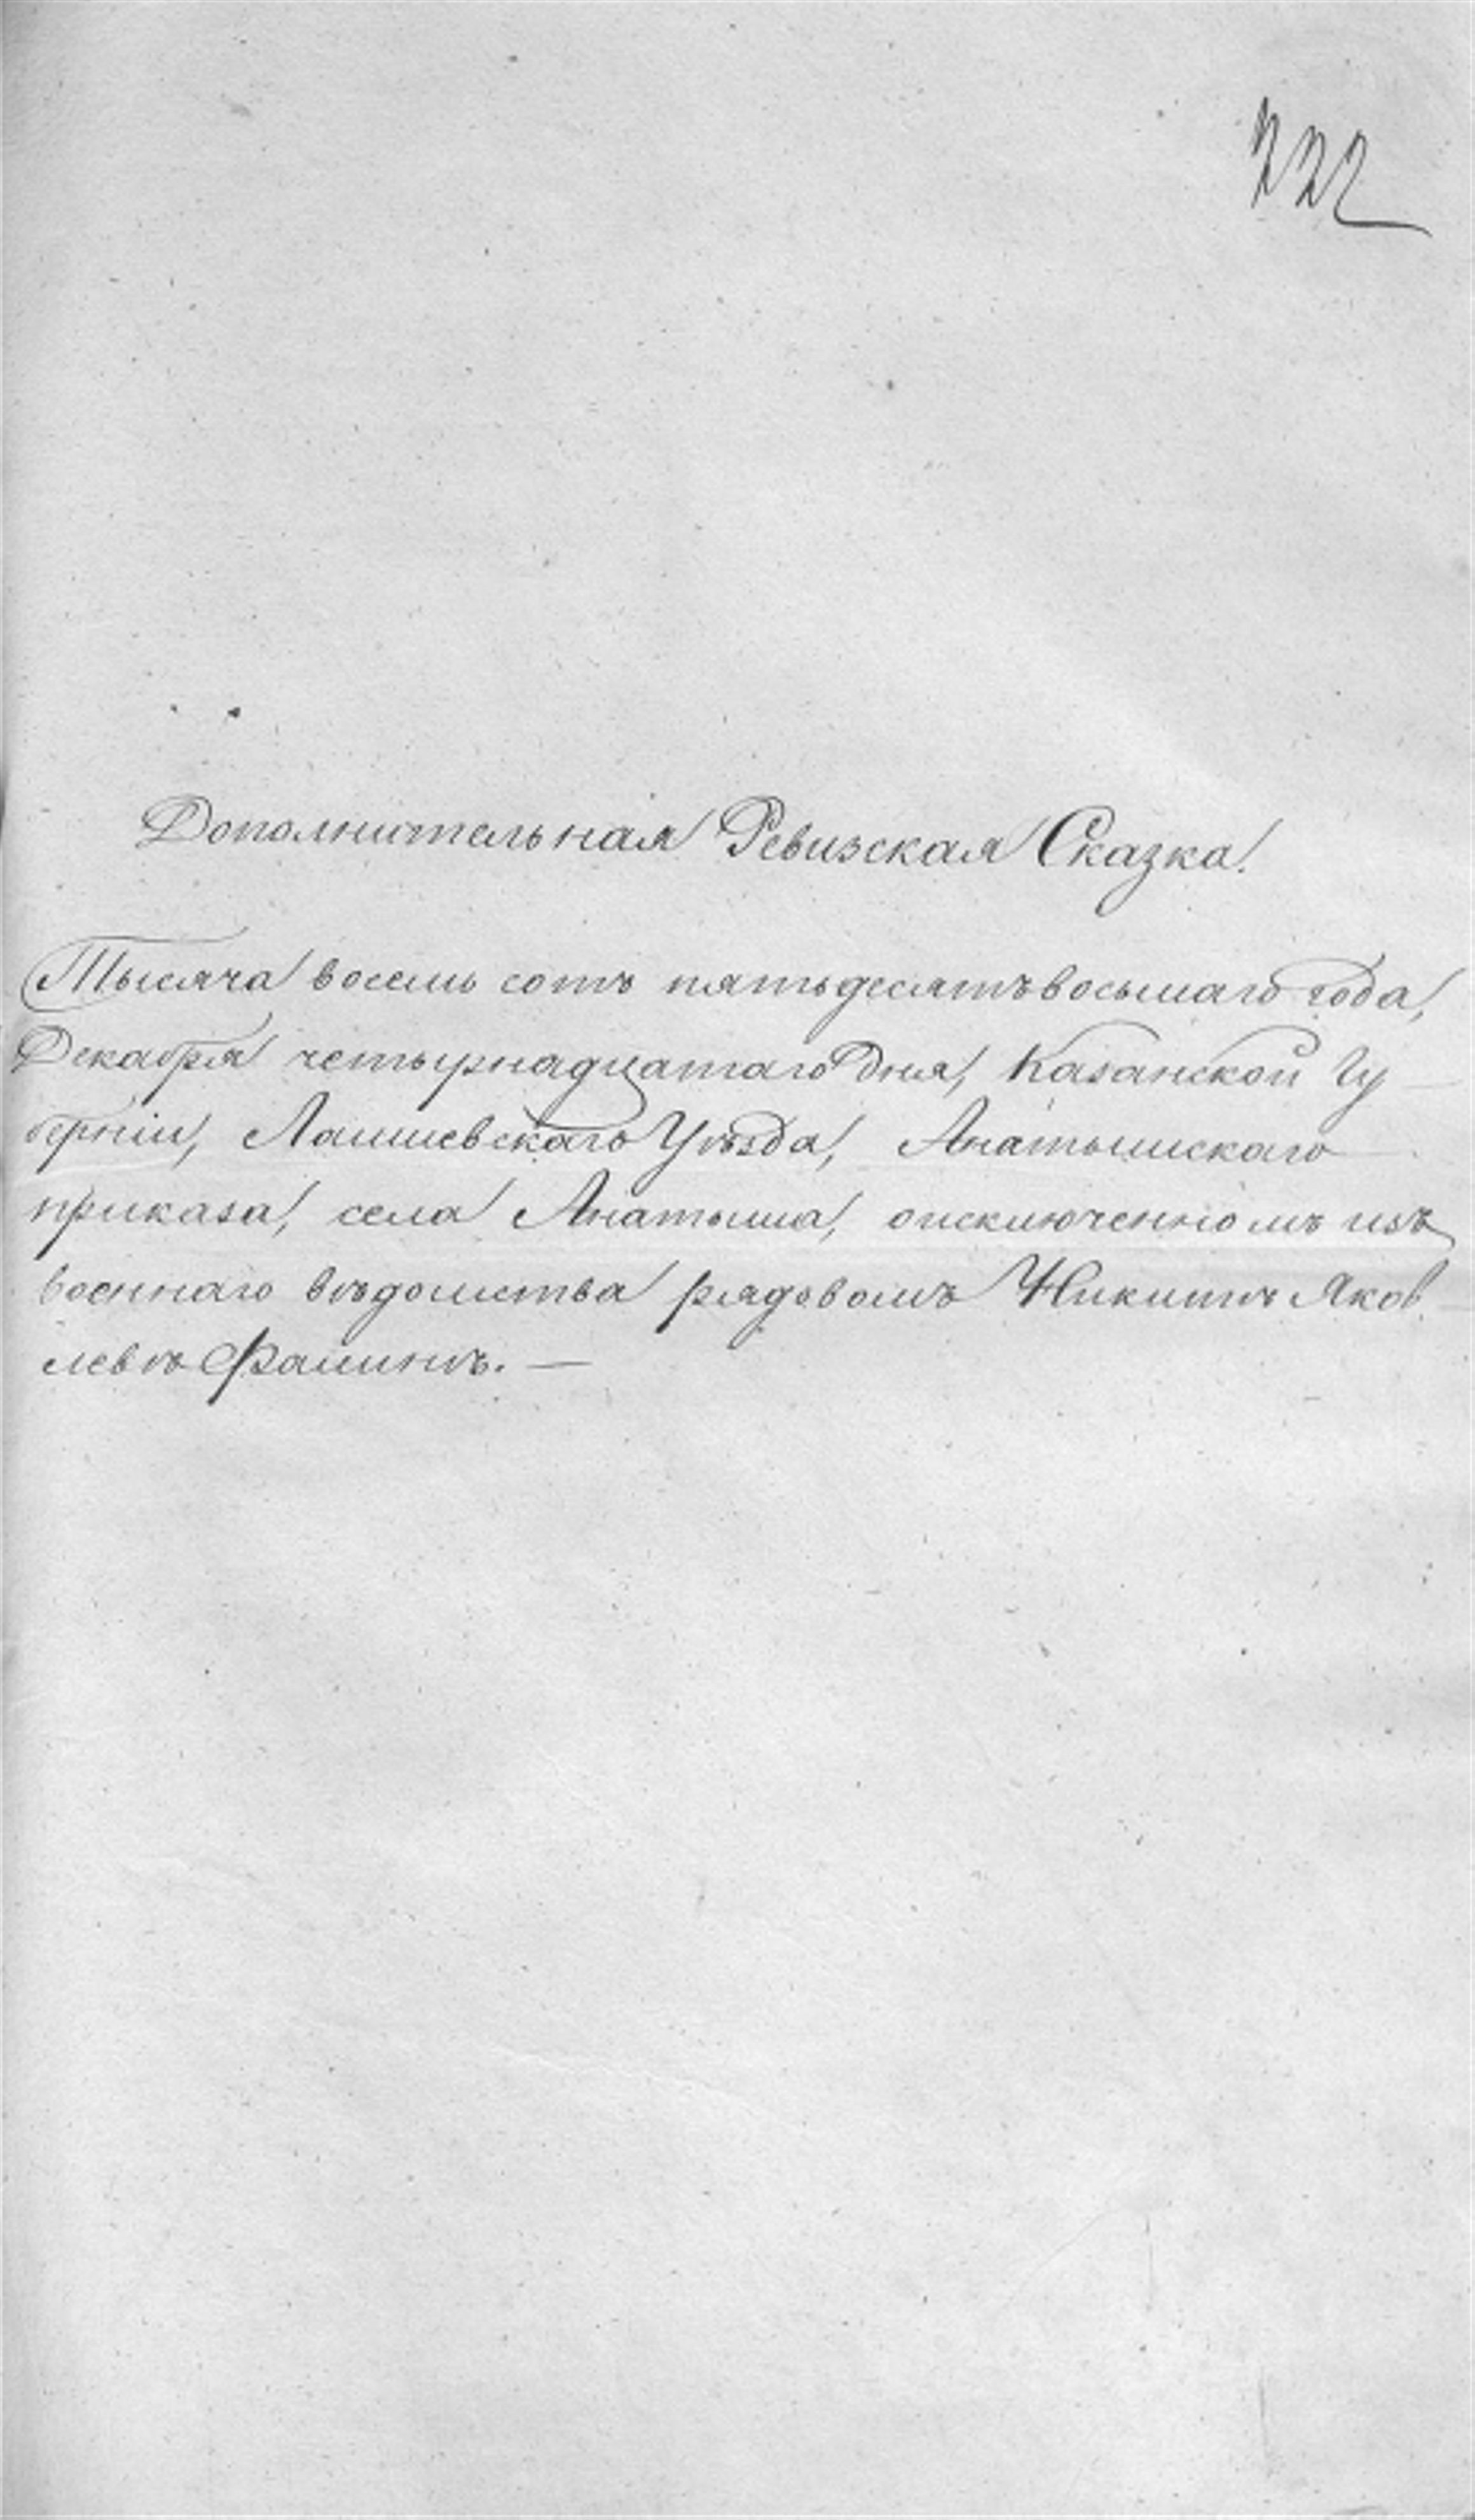 222
Дополнительная Ревизская Сказка.
Тысяча восемь сотъ пятьдесятъ восьмаго года,
Декабря четырнадцатаго дня, Казанской Гу
берніи, Лаишевскаго Уѣзда, Анатышскаго
приказа, села Анатыша, оисключенномъ изъ
военнаго вѣдомства рядовомъ Никитѣ Яков
левѣ Фаминѣ. —